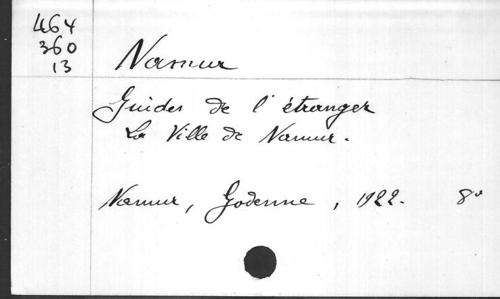 464
360
13
Namur
Guides de l'étranger
La Ville de Namur.
Namur, Godenne, 1922. 8°